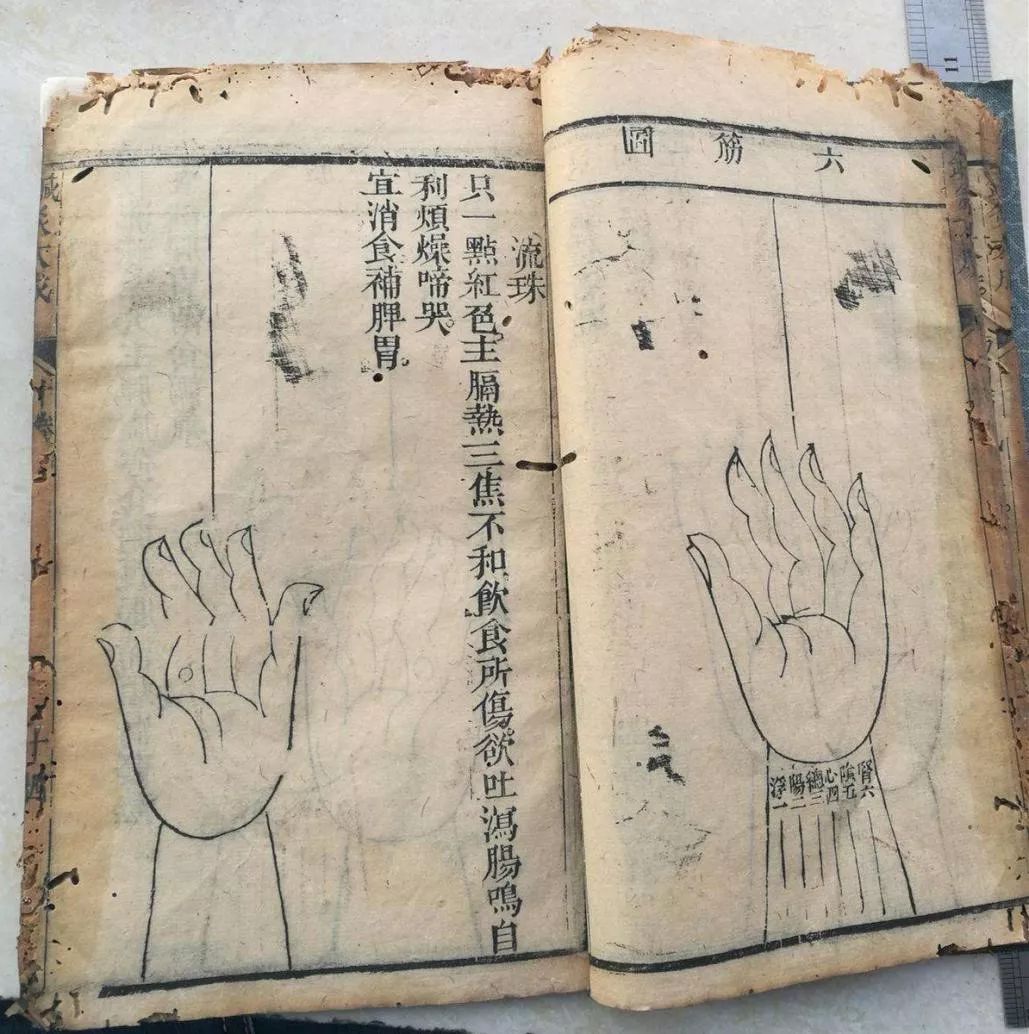 六筋圖
腎六
陰五
心四
總三
陽二
浮一
流珠
只一點紅色主膈熱三焦不和飲食所傷欲吐瀉腸鳴自
利煩燥啼哭。
宜消食補脾胃。
大成
十卷
11